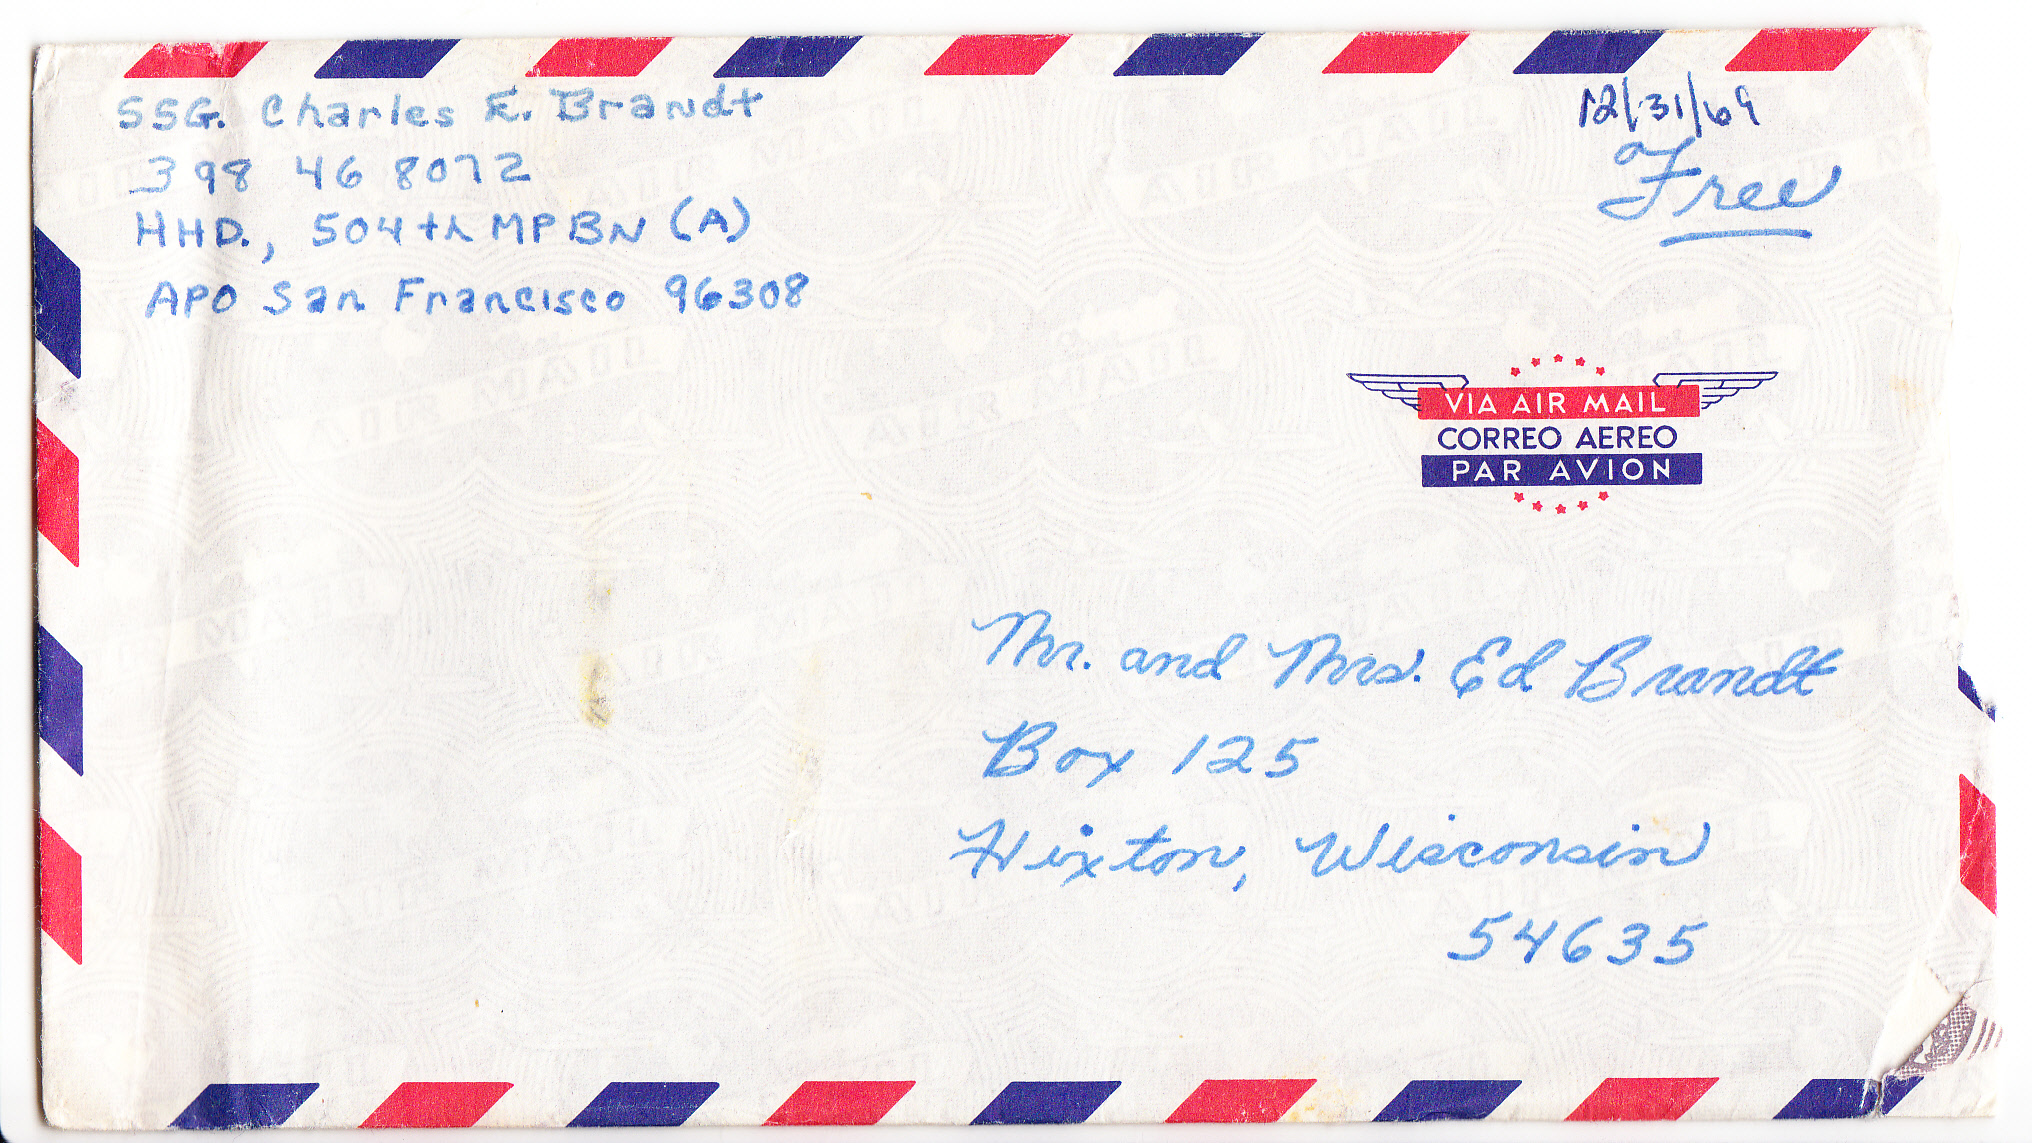 SSG. Charles E. Brandt
398 46 8072
HHD., 504th MP BN (A)
APO San Francisco 96308
12/31/69
Free
VIA AIR MAIL
CORREO AEREO
PAR AVION
Mr. and Mrs. Ed Brandt
Box 125
Hixton, Wisconsin
54635